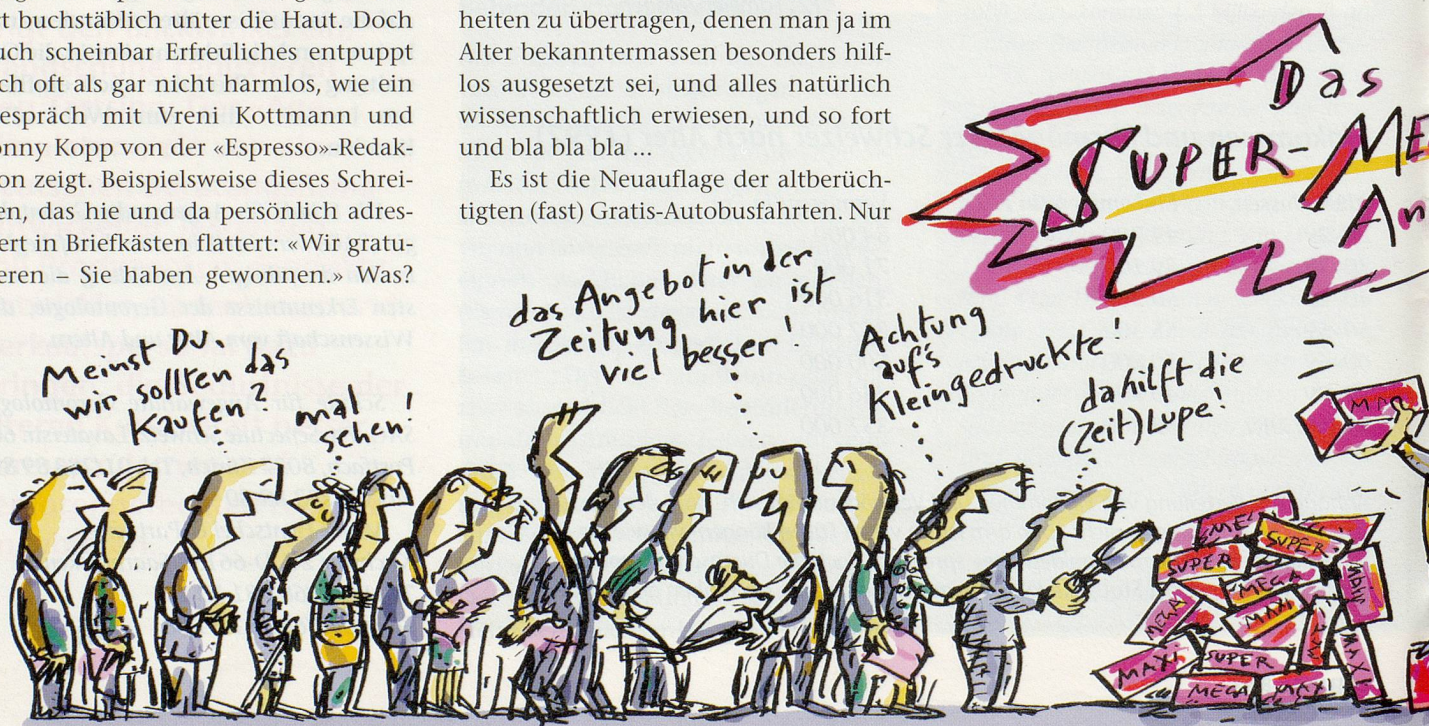 rt buchstäblich unter die Haut. Doch
uch scheinbar Erfreuliches entpuppt
ch oft als gar nicht harmlos, wie ein
espräch mit Vreni Kottmann und
onny Kopp von der «Espresso»-Redak-
on zeigt. Beispielsweise dieses Schrei-
en, das hie und da persönlich adres-
ert in Briefkästen flattert: «Wir gratu-
eren – Sie haben gewonnen.» Was?
heiten zu übertragen, denen man ja im
Alter bekanntermassen besonders hilf-
los ausgesetzt sei, und alles natürlich
wissenschaftlich erwiesen, und so fort
und bla bla bla ...
Es ist die Neuauflage der altberüch-
tigten (fast) Gratis-Autobusfahrten. Nur
Das
SUPER ME
An
Meinst Du
wir sollten das
Kaufen?
mal
sehen!
das Angebot in der
Zeitung hier ist
viel besser
Achtung
auf's
Kleingedruckte
da hilft die
(Zeit)Lupe!
MEGA
SUPER
SUPER
MEGA
MEGA
MAXI
MAXI
SUPER
MEGA
MAXI
MAXI